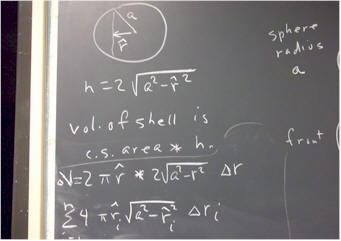 a
r̂
sphere
radius
a
h = 2 √(a² - r̂²)
vol. of shell is
c.s. area * h.
front
ΔV = 2 π r̂ * 2√(a² - r²) Δr
Σ 4 π r̂ᵢ √(a² - r̂ᵢ²) Δrᵢ